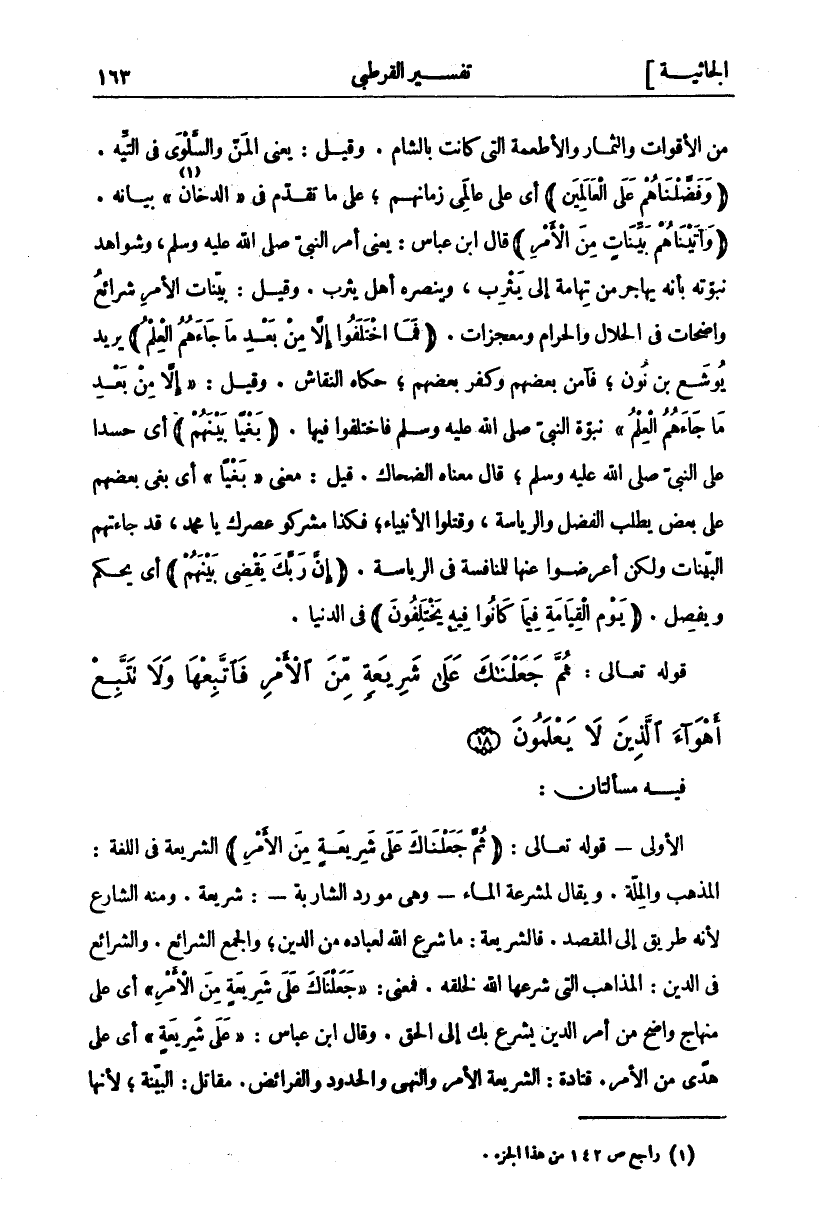 الجاثية ] تفسير القرطبى ١٦٣
من الأقوات والثمار والأطعمة التى كانت بالشام . وقيل : يعنى المَنّ والسَّلْوَى فى التِّيه .
﴿ وَفَضَّلْنَاهُمْ عَلَى الْعَالَمِينَ ﴾ أى على عالَمِى زمانهم ؛ على ما تقدّم فى « الدخان (١) » بيانه .
﴿ وَآتَيْنَاهُمْ بَيِّنَاتٍ مِنَ الْأَمْرِ ﴾ قال ابن عباس : يعنى أمر النبىّ صلى الله عليه وسلم، وشواهد
نبوّته بأنه يهاجر من تِهامة إلى يَثْرِب ، وينصره أهل يثرب . وقيل : بيّنات الأمرِ شرائعُ
واضحات فى الحلال والحرام ومعجزات . ﴿ فَمَا اخْتَلَفُوا إِلَّا مِنْ بَعْدِ مَا جَاءَهُمُ الْعِلْمُ ﴾ يريد
يُوشَع بن نُون ؛ فآمن بعضهم وكفر بعضهم ؛ حكاه النقاش . وقيل : « إِلَّا مِنْ بَعْدِ
مَا جَاءَهُمُ الْعِلْمُ » نبوّة النبىّ صلى الله عليه وسلم فاختلفوا فيها . ﴿ بَغْيًا بَيْنَهُمْ ﴾ أى حسدا
على النبىّ صلى الله عليه وسلم ؛ قال معناه الضحاك . قيل : معنى « بَغْيًا » أى بغى بعضهم
على بعض يطلب الفضل والرياسة ، وقتلوا الأنبياء؛ فكذا مشركو عصرك يا محمد ، قد جاءتهم
البيّنات ولكن أعرضوا عنها للنافسة فى الرياسة . ﴿ إِنَّ رَبَّكَ يَقْضِى بَيْنَهُمْ ﴾ أى يحكم
ويفصِل . ﴿ يَوْمَ الْقِيَامَةِ فِيمَا كَانُوا فِيهِ يَخْتَلِفُونَ ﴾ فى الدنيا .
قوله تعالى : ثُمَّ جَعَلْنَٰكَ عَلَىٰ شَرِيعَةٍ مِّنَ ٱلْأَمْرِ فَٱتَّبِعْهَا وَلَا تَتَّبِعْ
أَهْوَآءَ ٱلَّذِينَ لَا يَعْلَمُونَ ۝١٨
فيه مسألتان :
الأولى — قوله تعالى : ﴿ ثُمَّ جَعَلْنَاكَ عَلَى شَرِيعَةٍ مِنَ الأَمْرِ ﴾ الشريعة فى اللغة :
المذهب والمِلّة . ويقال لمشرعة الماء — وهى مورد الشاربة — : شريعة . ومنه الشارع
لأنه طريق إلى المقصد . فالشريعة : ما شرع الله لعباده من الدين؛ والجمع الشرائع . والشرائع
فى الدين : المذاهب التى شرعها الله لخلقه . فمعنى : «جَعَلْنَاكَ عَلَى شَرِيعَةٍ مِنَ الْأَمْرِ» أى على
منهاج واضح من أمر الدين يشرع بك إلى الحق . وقال ابن عباس : « عَلَى شَرِيعَةٍ » أى على
هدًى من الأمر. قتادة : الشريعة الأمر والنهى والحدود والفرائض. مقاتل : البيّنة ؛ لأنها
(١) راجع ص ١٤٢ من هذا الجزء .